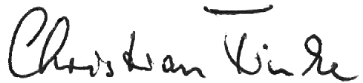 Christian Finke